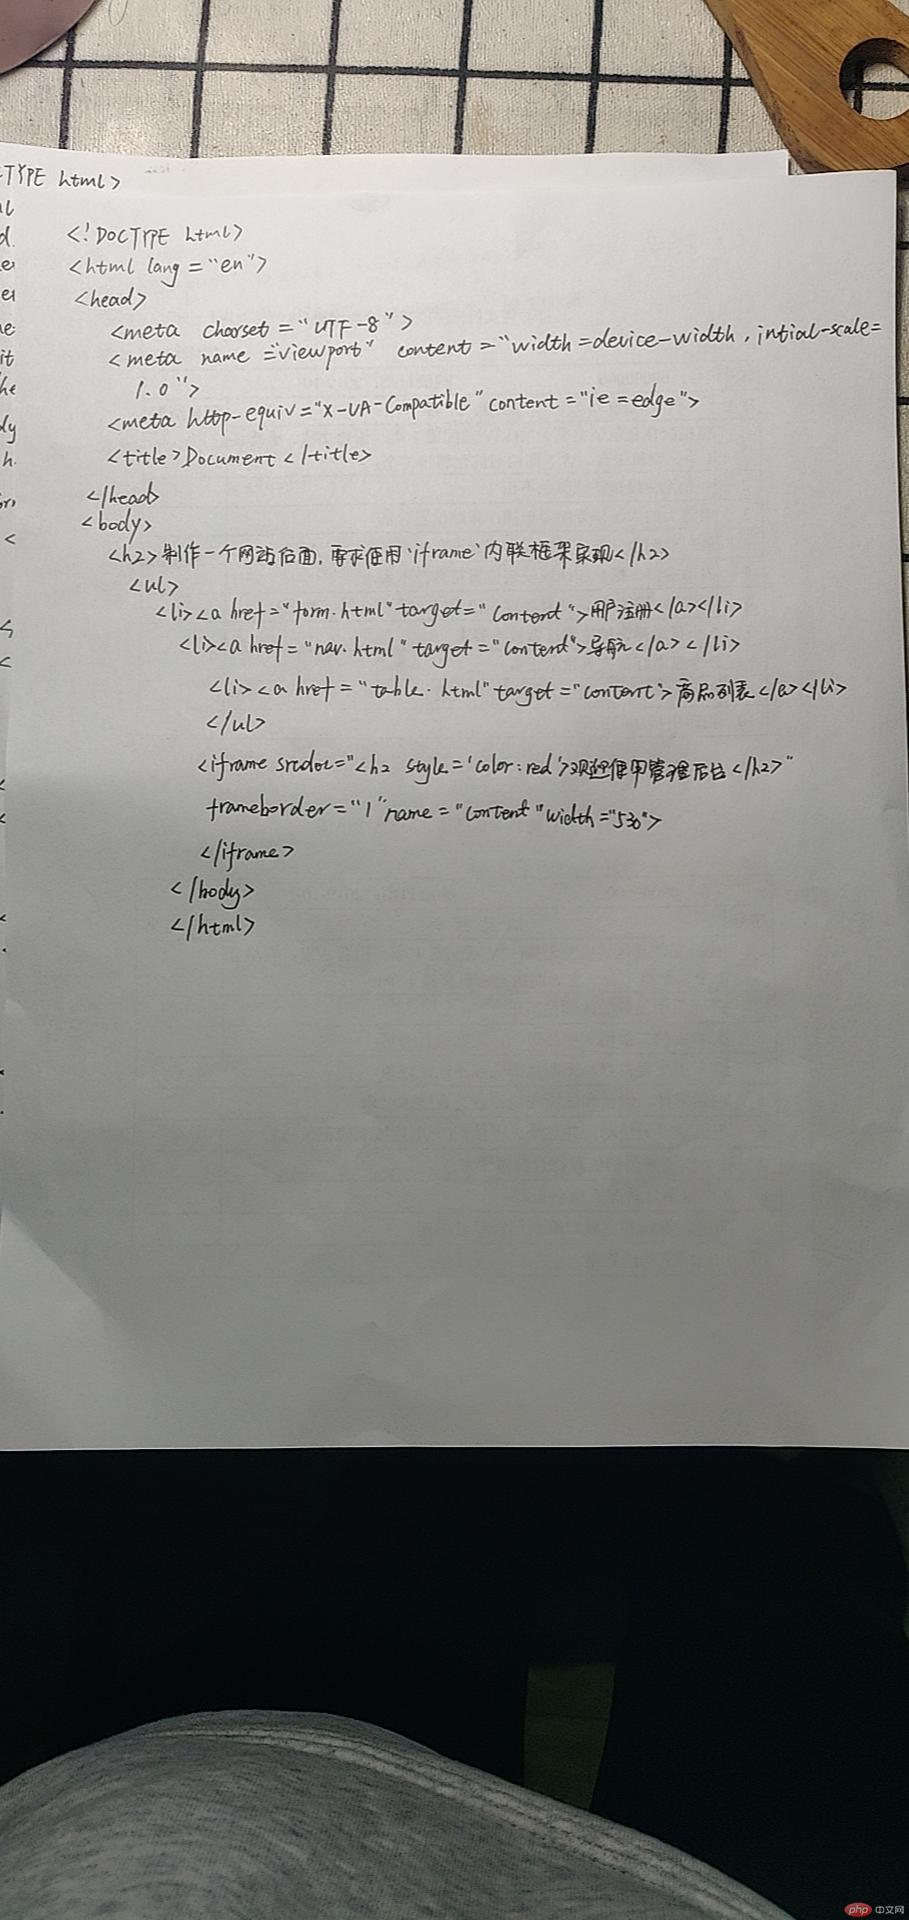 TYPE html>
<!DOCTYPE html>
<html lang="en">
<head>
<meta charset="UTF-8">
<meta name="viewport" content="width=device-width, intial-scale=
1.0">
<meta http-equiv="X-UA-Compatible" content="ie=edge">
<title>Document</title>
</head>
<body>
<h2>制作一个网站后面,要求使用'iframe'内联框架实现</h2>
<ul>
<li><a href="form.html" target="content">用户注册</a></li>
<li><a href="nav.html" target="content">导航</a></li>
<li><a href="table.html" target="content">商品列表</a></li>
</ul>
<iframe srcdoc="<h2 style='color:red'>欢迎使用管理后台</h2>"
frameborder="1" name="content" width="530">
</iframe>
</body>
</html>
php 中文网